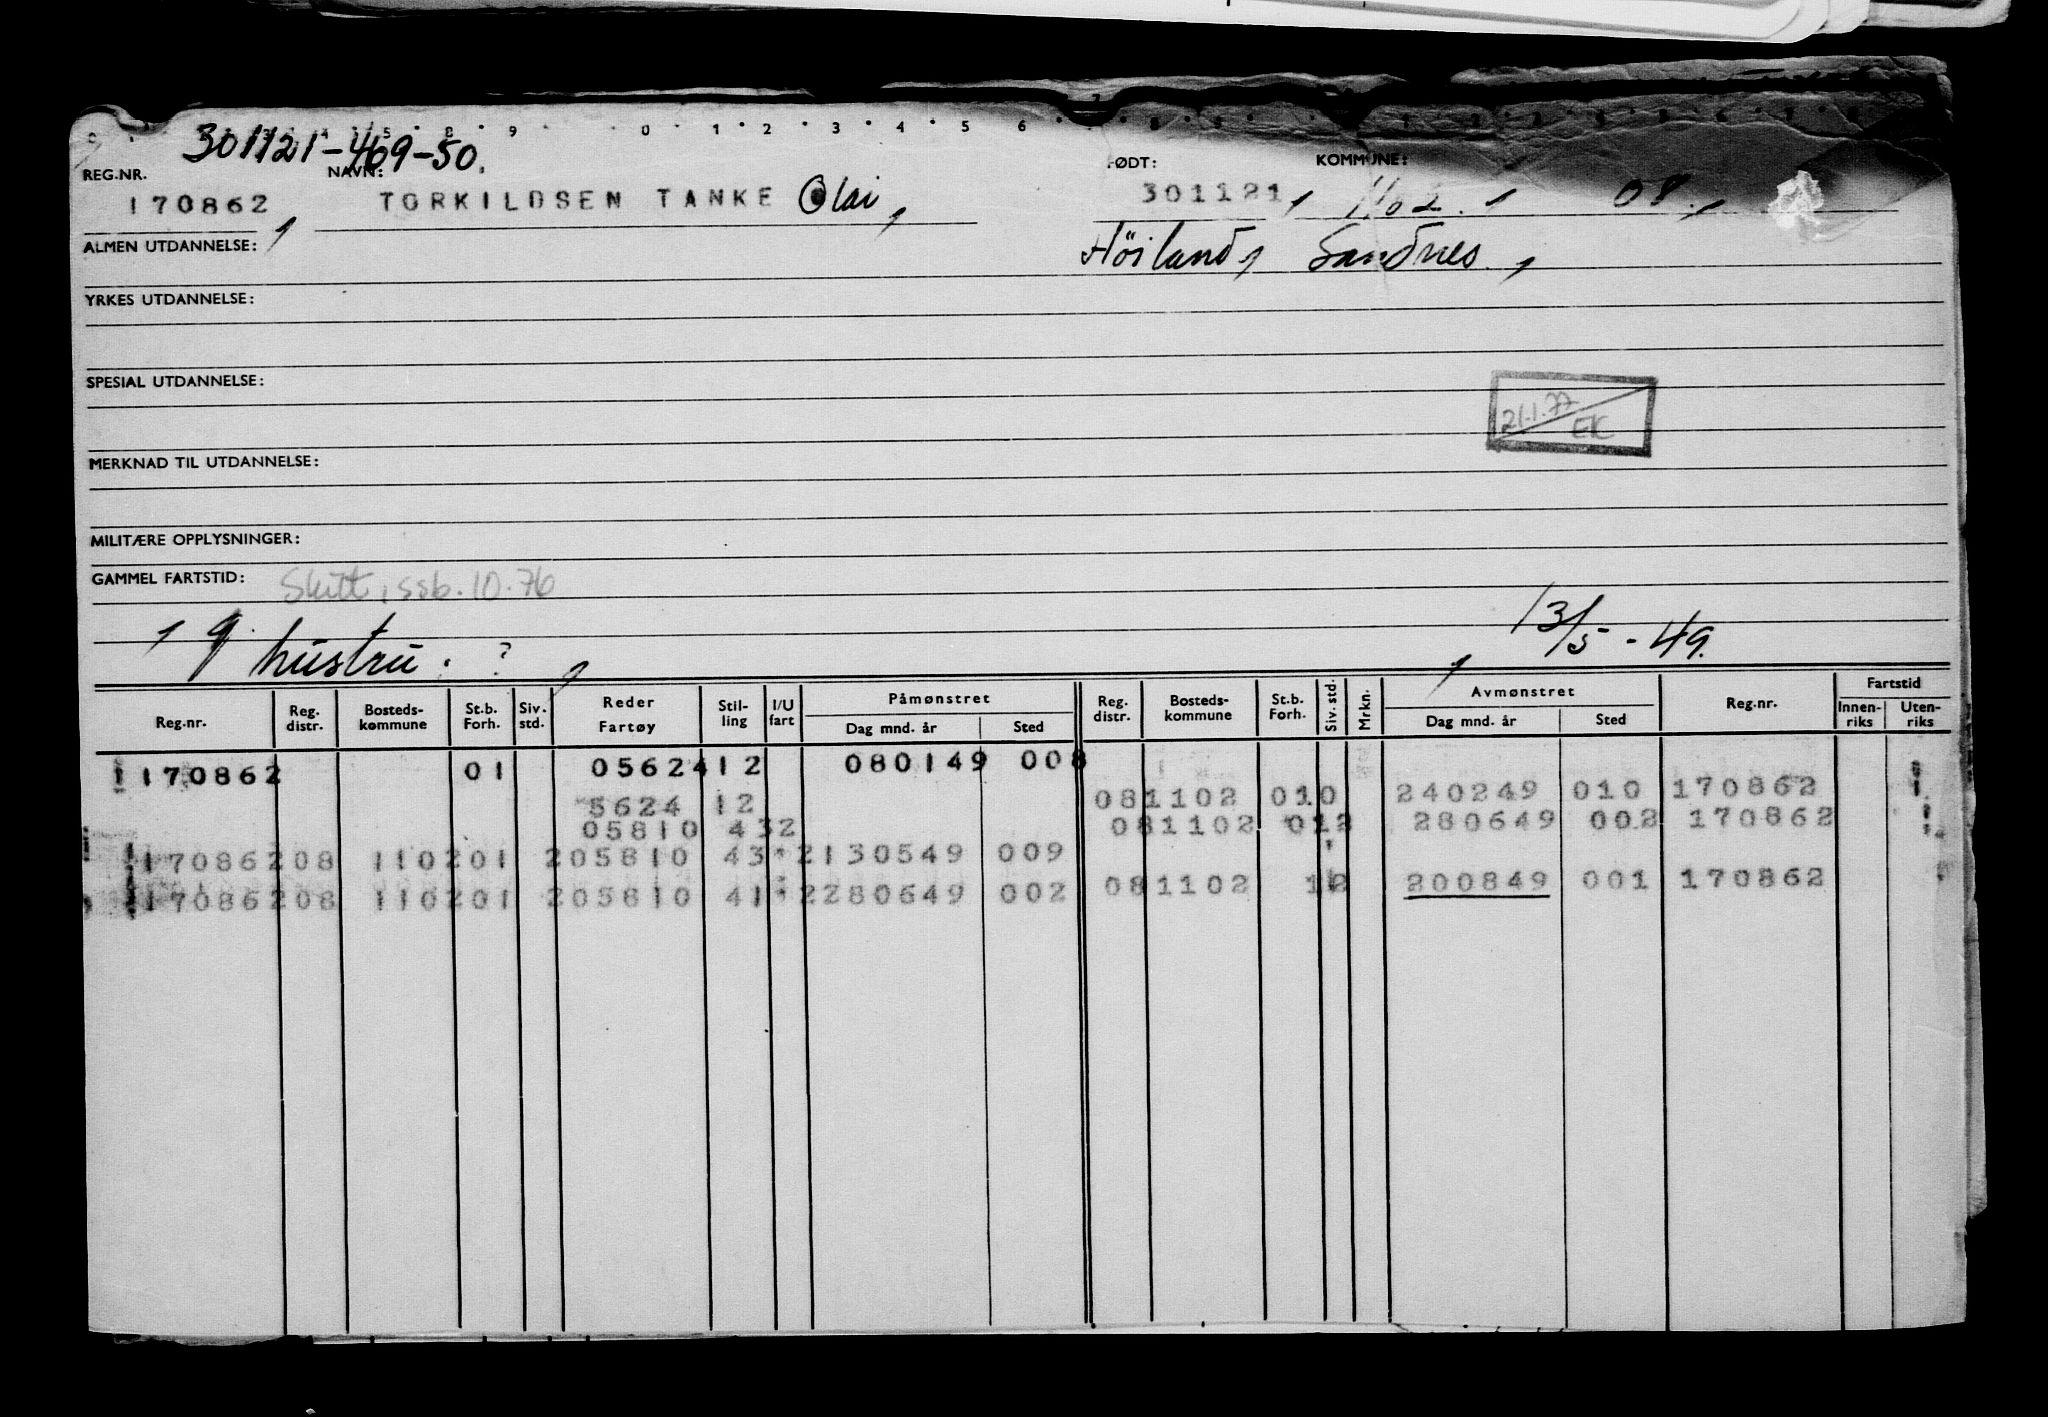 301121-469-50.
REG.NR. NAVN: FØDT: KOMMUNE:
170862, TORKILDSEN TANKE Olai, 301121, 1102, 08,
ALMEN UTDANNELSE: Höiland, Sandnes,
YRKES UTDANNELSE:
SPESIAL UTDANNELSE:
21.1.77 EK
MERKNAD TIL UTDANNELSE:
MILITÆRE OPPLYSNINGER:
GAMMEL FARTSTID: Slutt, ssb. 10.76
g hustru: ? 13/5 - 49.
Reg.nr. Reg. distr. Bosteds-kommune St.b. Forh. Siv. std. Reder Fartøy Stil-ling I/U fart Påmønstret Dag mnd. år Sted Reg. distr. Bosteds-kommune St.b. Forh. Siv. std. Mrkn. Avmønstret Dag mnd. år Sted Reg.nr. Fartstid Innen-riks Uten-riks
170862 01 05624 12 080149 008
5624 12 081102 010 240249 010 170862
05810 432 081102 012 280649 002 170862
170862 08 1102 01 205810 43 2 130549 009
170862 08 1102 01 205810 41 2 280649 002 081102 12 200849 001 170862